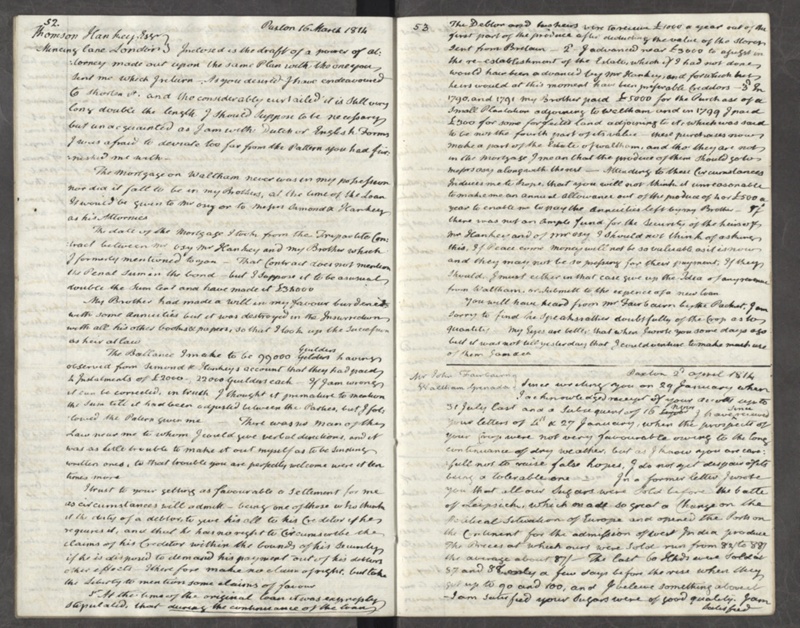 52.
Paxton 16 March 1814
Thomson Hankey Esqr
Mincing Lane London
Inclosed is the draft of a power of at-
torney made out upon the same Plan with the one you
sent me which I return. As you desired I have endeavoured
to shorten it, and tho considerably curtailed it is still very
long double the length I should suppose to be necessary
but unacquainted as I am with Dutch or English Forms
I was afraid to deviate too far from the Pattern you had fur-
nished me with.
The mortgage on Waltham never was in my possession
nor did it fall to be in my Brothers, at the time of the Loan
It would be given to Mr Osy or to Messrs Simond & Hankey
as his Attornies
The date of the Mortgage I took from the Tripartite Con-
tract between Mr Osy Mr Hankey and my Brother which
I formerly mentioned to you That Contract does not mention
the Penal Sum in the bond but I suppose it to be as usual
double the Sum lent and have made it £38000
My Brother had made a will in my favour burdened
with some annuities but it was destroyed in the Insurrection
with all his other books & papers, so that I took up the Succession
as heir at law
The Ballance I make to be 99000 Guilders having
observed from Simond & Hankeys account that they had paid
Instalments of £2000 22000 Guilders each If I am wrong
it can be corrected, in truth I thought it premature to mention
the Sum till it had been adjusted between the Parties, but I fol-
lowed the Pattern given me There was no Man of the
Law near me to whom I could give verbal directions, and it
was as little trouble to make it out myself as to be sending
written ones, to that trouble you are perfectly welcome were it ten
times more
I trust to your getting as favourable a Settlement for me
as circumstances will admit being one of those who think
it the duty of a debtor to give his all to his Creditor if he
requires it, and that he has no right to Circumscribe the
claims of his Creditor within the bounds of his Security
if he is disposed to demand his payment out of his debtors
other effects I therefore make no claim of right, but take
the liberty to mention some claims of favour
1st At the time of the original loan it was expressly
stipulated, that during the continuance of the loan
53
The Debtor and his heirs were to receive £1000 a year out of the
first part of the produce after deducting the value of the Stores
sent from Britain 2d I advanced near £3000 to assist in
the re-establishment of the Estate, which if I had not done
would have been advanced by Mr Hankey, and for which his
heirs would at this moment have been preferable Creditors 3d In
1790, and 1791 my Brother paid £5000 for the Purchase of a
Small Plantation adjoining to Waltham and in 1799 I paid
£300 for some forfeited land adjoining to it, which was said
to be not the fourth part of its value these purchases now
make a part of the Estate of Waltham, and tho they are not
in the mortgage I mean that the produce of them should go to
Messrs Osy along with the rest Attending to these Circumstances
Induces me to hope that you will not think it unreasonable
to make me an annual allowance out of the produce of to £500 a
year to enable me to pay the Annuities left by my Brother If
there was not an ample fund for the Security of the heirs of
Mr Hankey and of Mr Osy I should not think of asking
this, If Peace come money will not be so valuable as it is now
and they may not be so pressing for their payment, If they
should, I must either in that case give up the Idea of any revenue
from Waltham, or submit to the expence of a new loan
You will have heard from Mr Fairbairn by the Packet; I am
sorry to find he speaks rather doubtfully of the Crop as to
quantity My Eyes are better, than when I wrote you some days ago
but it was not till yesterday that I could venture to make much use
of them I am &c &c
Mr John Fairbairn
Waltham Grenada
Paxton 2d April 1814
Since writing you on 29 January when
I acknowledged receipt of your accts up to
31 July last and a Subsequent of 16 Novr I have since received
your letters of 4th & 27 January, when the prospects of
your Crop were not very favourable owing to the long
continuance of dry weather, but as I know you are care-
full not to raise false hopes, I do not yet despair of its
being a tolerable one In a former letter I wrote
you that all our Sugars were Sold before the battle
of Leipsick, which made so great a Change on the
Political Situation of Europe and opened the Ports on
the Continent for the admission of West India produce
The Prices at which ours were Sold run from 83/ to 88/
the average about 87/ The last 20 Hhds were Sold at
87 and 88 only a few days before the rise when they
got up to 90 and 100, and I believe something above
I am satisfied your Sugars were of good quality. I am
satisfied